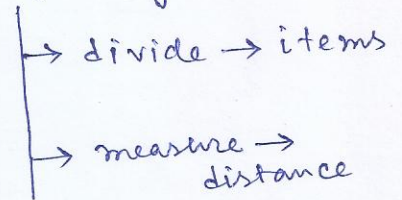 → divide → items
→ measure →
distance